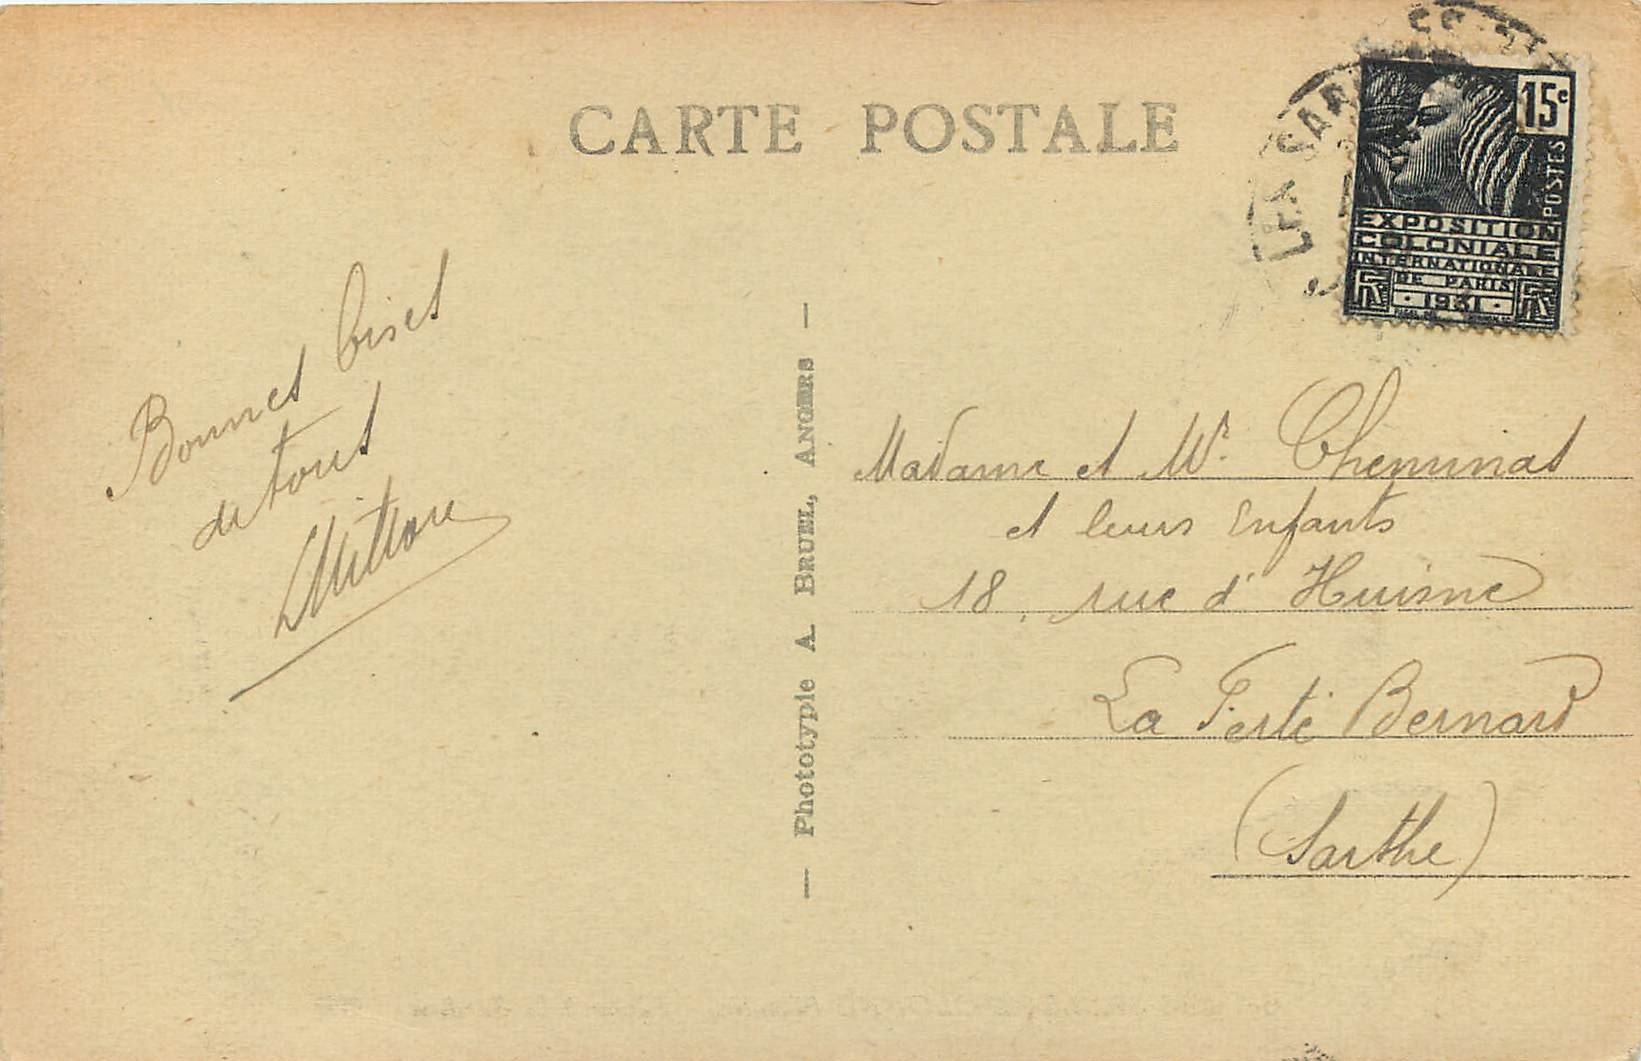 CARTE POSTALE
LA GAR
15c
POSTES
EXPOSITION
COLONIALE
INTERNATIONALE
DE PARIS
· 1931 ·
RF RF
Bonnes bises
de tous
— Phototypie A. BRUEL, ANGERS —
Madame et Mr. Cheminat
et leurs Enfants
18, rue d'Huisne
La Ferté Bernard
(Sarthe)